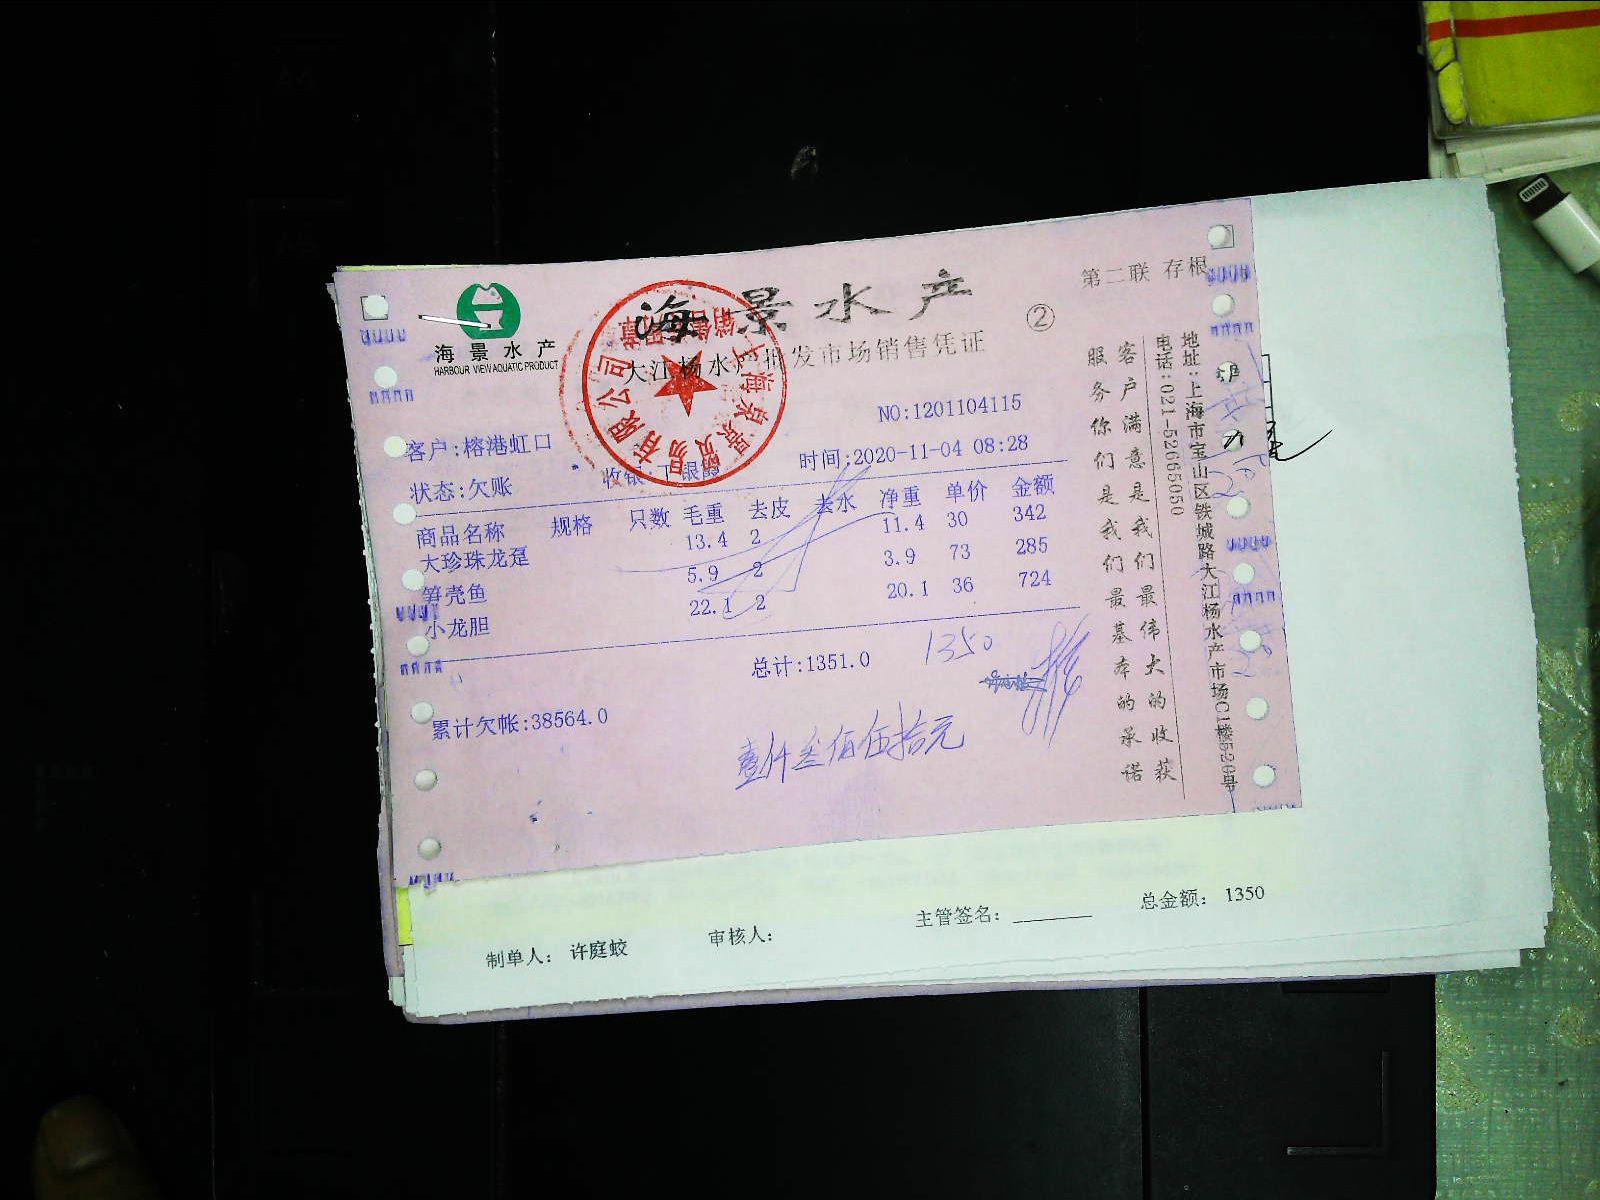 海景水产
第二联 存根
②
海景水产
HARBOUR VIEW AQUATIC PRODUCT
大江杨水产批发市场销售凭证
NO:1201104115
客户:榕港虹口
时间:2020-11-04 08:28
状态:欠账
收银:丁银
商品名称 规格 只数 毛重 去皮 去水 净重 单价 金额
大珍珠龙趸 13.4 2 11.4 30 342
笋壳鱼 5.9 2 3.9 73 285
小龙胆 22.1 2 20.1 36 724
总计:1351.0
1350
累计欠帐:38564.0
壹仟叁佰伍拾元
客户满意是我们最伟大的收获
服务你们是我们最基本的承诺
地址:上海市宝山区铁城路大江杨水产市场C1楼520号
电话:021-52665050
上海京景贸易有限公司
销售专用章
制单人: 许庭蛟
审核人:
主管签名:
总金额: 1350